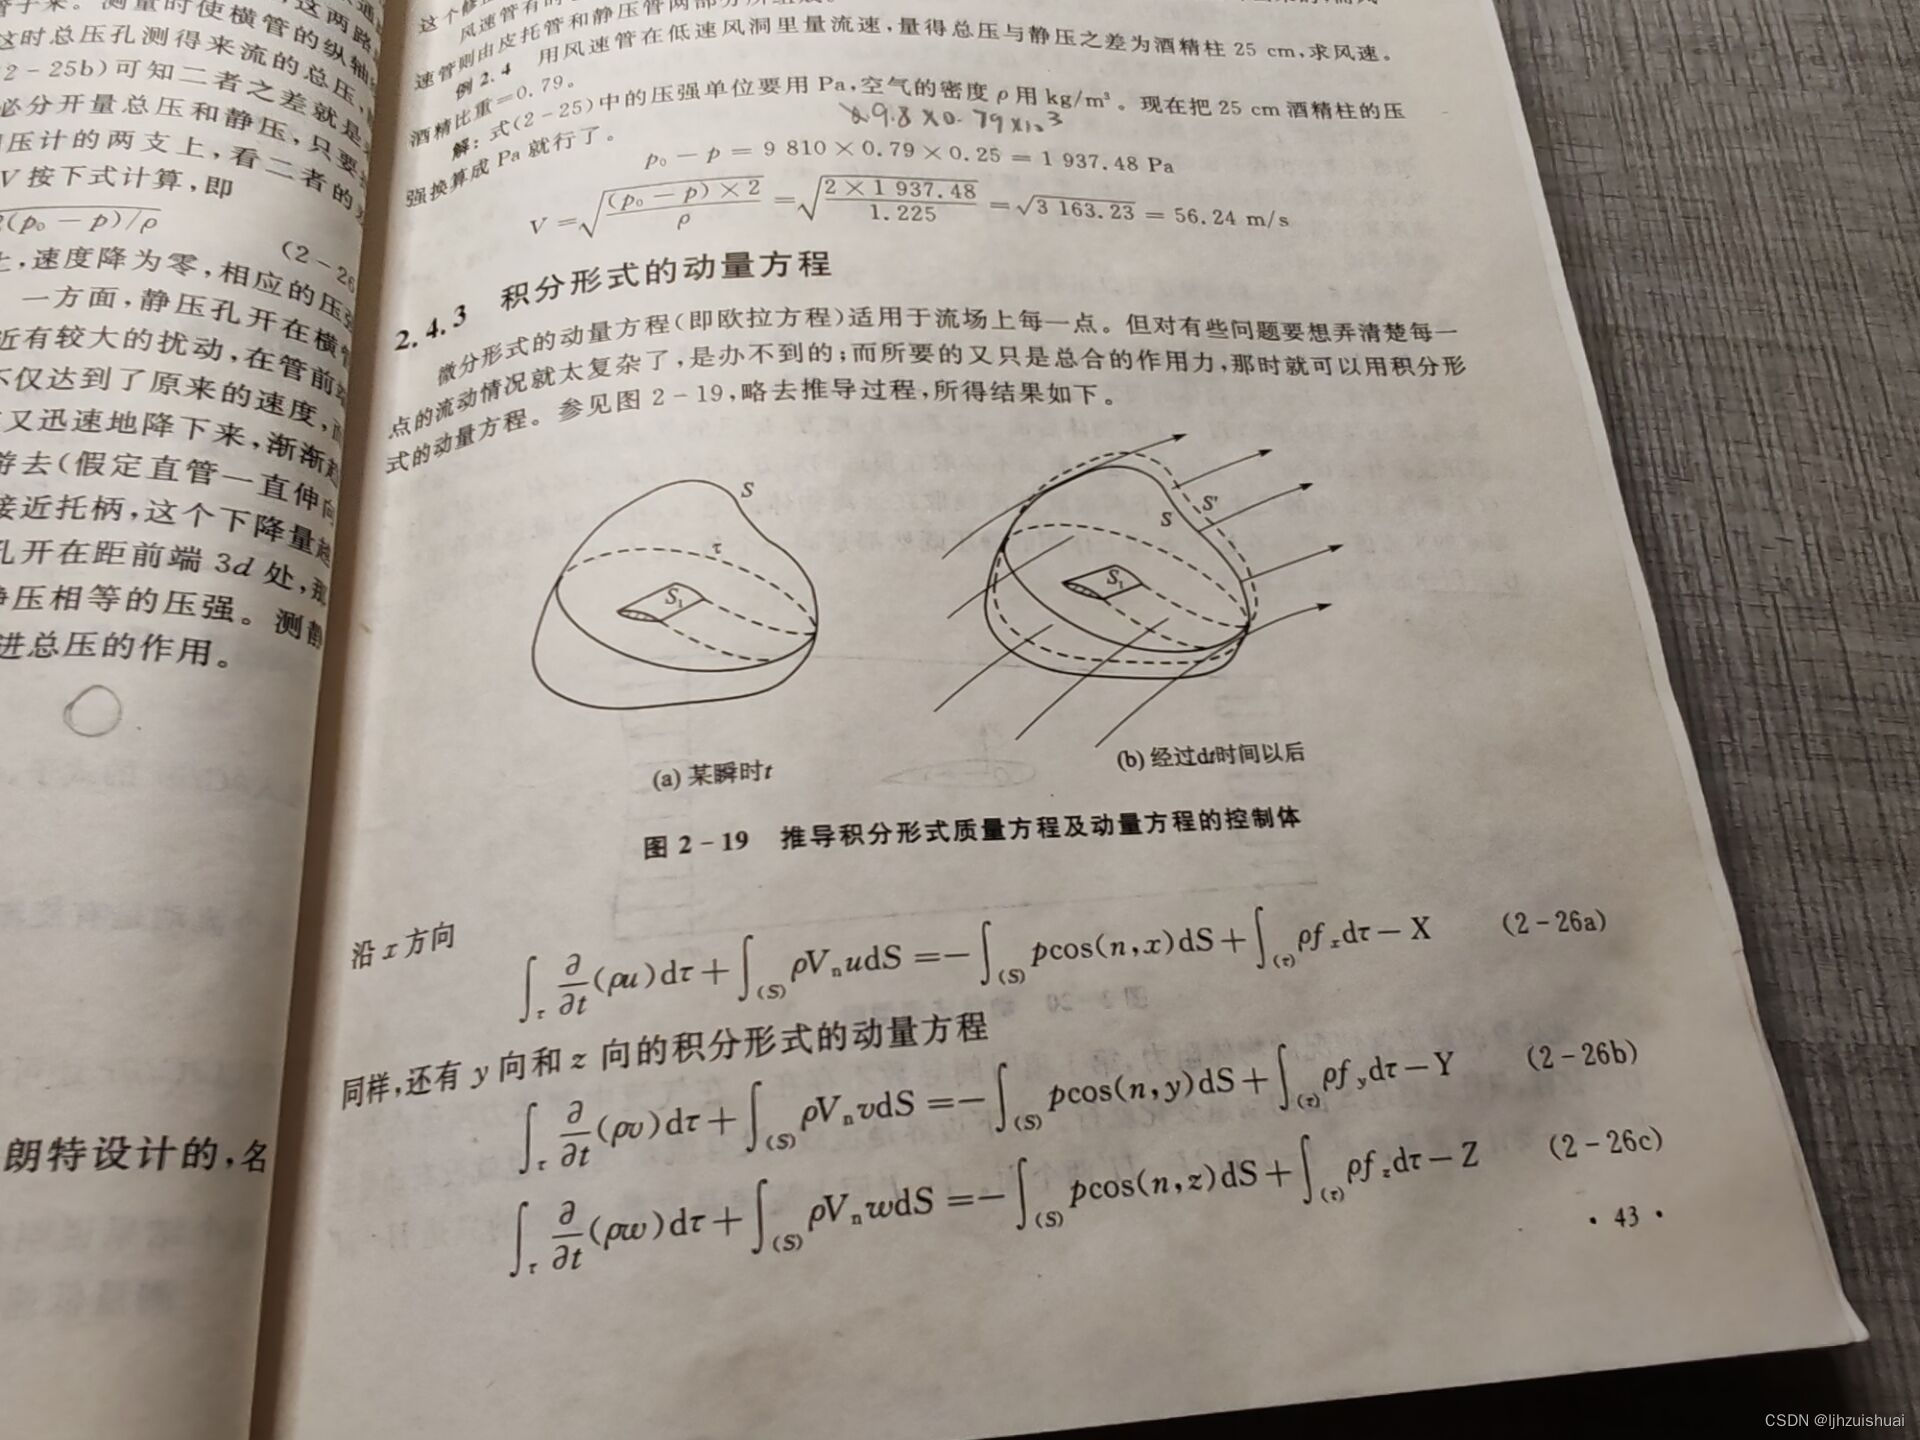 这两路
管子来。测量时使横管的纵轴
这时总压孔测得来流的总压,
2-25b)可知二者之差就是
必分开量总压和静压,只要
压计的两支上,看二者的
V按下式计算,即
2(p₀-p)/ρ
(2-26
,速度降为零,相应的压强
一方面,静压孔开在横管
近有较大的扰动,在管前端
不仅达到了原来的速度,而
又迅速地降下来,渐渐趋
游去(假定直管一直伸向
接近托柄,这个下降量
孔开在距前端 3d 处,那
静压相等的压强。测静
进总压的作用。
朗特设计的,名
这个修正
风速管有时
速管则由皮托管和静压管两部分所组成。
例 2.4 用风速管在低速风洞里量流速,量得总压与静压之差为酒精柱 25 cm,求风速。
酒精比重=0.79。
解:式(2-25)中的压强单位要用 Pa,空气的密度 ρ 用 kg/m³。现在把 25 cm 酒精柱的压
强换算成 Pa 就行了。
9.8×0.79×10³
p₀-p=9 810×0.79×0.25=1 937.48 Pa
V=√((p₀-p)×2/ρ)=√(2×1 937.48/1.225)=√3 163.23=56.24 m/s
2.4.3 积分形式的动量方程
微分形式的动量方程(即欧拉方程)适用于流场上每一点。但对有些问题要想弄清楚每一
点的流动情况就太复杂了,是办不到的;而所要的又只是总合的作用力,那时就可以用积分形
式的动量方程。参见图 2-19,略去推导过程,所得结果如下。
S
τ
S₁
S'
S
S₁
(a) 某瞬时t
(b) 经过dt时间以后
图 2-19 推导积分形式质量方程及动量方程的控制体
沿 x 方向
∫_τ ∂/∂t(ρu)dτ+∫_(S) ρVₙudS=-∫_(S) pcos(n,x)dS+∫_(τ) ρfₓdτ-X (2-26a)
同样,还有 y 向和 z 向的积分形式的动量方程
∫_τ ∂/∂t(ρv)dτ+∫_(S) ρVₙvdS=-∫_(S) pcos(n,y)dS+∫_(τ) ρf_y dτ-Y (2-26b)
∫_τ ∂/∂t(ρw)dτ+∫_(S) ρVₙwdS=-∫_(S) pcos(n,z)dS+∫_(τ) ρf_z dτ-Z (2-26c)
· 43 ·
CSDN @ljhzuishuai